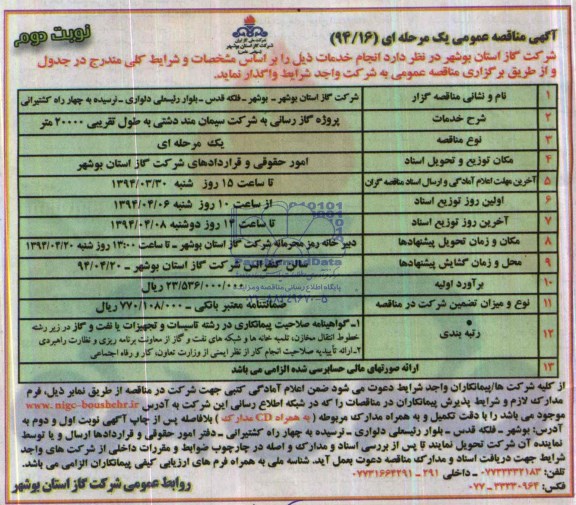 نوبت دوم
شرکت ملی گاز ایران
شرکت گاز استان بوشهر
(سهامی خاص)
آگهی مناقصه عمومی یک مرحله ای (۹۴/۱۶)
شرکت گاز استان بوشهر در نظر دارد انجام خدمات ذیل را بر اساس مشخصات و شرایط کلی مندرج در جدول
و از طریق برگزاری مناقصه عمومی به شرکت واجد شرایط واگذار نماید.
۱ نام و نشانی مناقصه گزار شرکت گاز استان بوشهر - بوشهر - فلکه قدس - بلوار رئیسعلی دلواری - نرسیده به چهار راه کشتیرانی
۲ شرح خدمات پروژه گاز رسانی به شرکت سیمان مند دشتی به طول تقریبی ۲۰۰۰۰ متر
۳ نوع مناقصه یک مرحله ای
۴ مکان توزیع و تحویل اسناد امور حقوقی و قراردادهای شرکت گاز استان بوشهر
۵ آخرین مهلت اعلام آمادگی و ارسال اسناد مناقصه گران تا ساعت ۱۵ روز شنبه ۱۳۹۴/۰۳/۳۰
۶ اولین روز توزیع اسناد از ساعت ۱۰ روز شنبه ۱۳۹۴/۰۴/۰۶
۷ آخرین روز توزیع اسناد تا ساعت ۱۴ روز دوشنبه ۱۳۹۴/۰۴/۰۸
۸ مکان و زمان تحویل پیشنهادها دبیر خانه رمز محرمانه شرکت گاز استان بوشهر - تا ساعت ۱۳:۰۰ روز شنبه ۱۳۹۴/۰۴/۲۰
۹ محل و زمان گشایش پیشنهادها سالن کنفرانس شرکت گاز استان بوشهر - ۹۴/۰۴/۲۰
۱۰ برآورد اولیه ۲۳/۵۳۶/۰۰۰/۰۰۰ ریال
۱۱ نوع و میزان تضمین شرکت در مناقصه ضمانتنامه معتبر بانکی - ۷۷۰/۱۰۸/۰۰۰ ریال
۱۲ رتبه بندی ۱- گواهینامه صلاحیت پیمانکاری در رشته تاسیسات و تجهیزات یا نفت و گاز در زیر رشته
خطوط انتقال مخازن، تلمبه خانه ها و شبکه های نفت و گاز از معاونت برنامه ریزی و نظارت راهبردی
۲- ارائه تأییدیه صلاحیت انجام کار از نظر ایمنی از وزارت تعاون، کار و رفاه اجتماعی
۱۳ ارائه صورتهای مالی حسابرسی شده الزامی می باشد
از کلیه شرکت ها/پیمانکاران واجد شرایط دعوت می شود ضمن اعلام آمادگی کتبی جهت شرکت در مناقصه از طریق نمابر ذیل، فرم
مدارک لازم و شرایط پذیرش پیمانکاران در مناقصات را که در شبکه اطلاع رسانی این شرکت به آدرس www.nigc-boushehr.ir
موجود می باشد را با دقت تکمیل و به همراه مدارک مربوطه (به همراه CD مدارک) بلافاصله پس از چاپ آگهی نوبت اول و دوم به
آدرس: بوشهر - فلکه قدس - بلوار رئیسعلی دلواری - نرسیده به چهار راه کشتیرانی - دفتر امور حقوقی و قراردادها ارسال و یا توسط
نماینده آن شرکت تحویل نمایند تا پس از بررسی اسناد و مدارک و اصله در چارچوب ضوابط و مقررات داخلی از شرکت های واجد
شرایط جهت دریافت اسناد و مدارک مناقصه دعوت بعمل آید. شناسه ملی به همراه فرم های ارزیابی کیفی پیمانکاران الزامی می باشد.
تلفن: ۰۷۷۳۳۳۳۲۱۸۳ - داخلی ۲۹۱ - ۰۷۷۳۱۶۶۴۲۹۱
فکس: ۳۳۳۳۰۹۶۲ - ۰۷۷
روابط عمومی شرکت گاز استان بوشهر